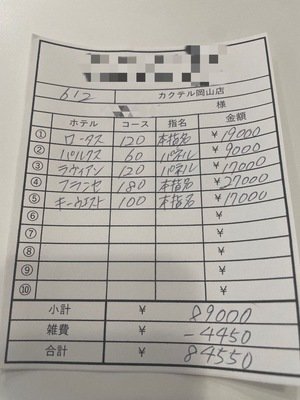 612 カクテル岡山店
様
ホテル コース 指名 金額
① ロータス 120 本指名 ¥19000
② パルクス 60 パネル ¥9000
③ ラヴィアン 120 パネル ¥17000
④ フランセ 180 本指名 ¥27000
⑤ キーウエスト 100 本指名 ¥17000
⑥ ¥
⑦ ¥
⑧ ¥
⑨ ¥
⑩ ¥
小計 ¥ 89000
雑費 ¥ -4450
合計 ¥ 84550